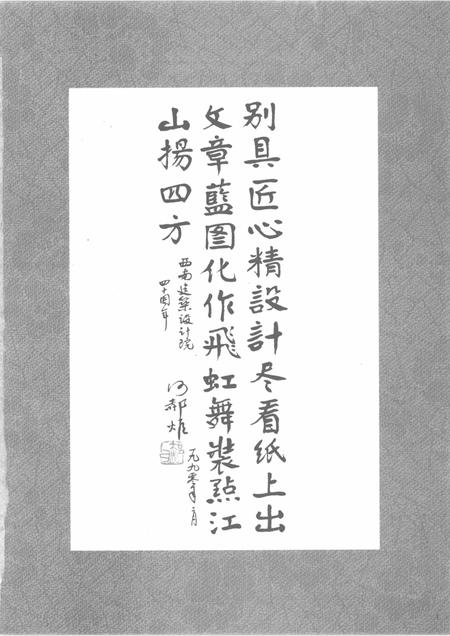 别具匠心精設計尽看纸上出
文章藍图化作飛虹舞裝點江
山揚四方
西南建筑设计院
四十周年
何郝炬
一九九零年二月